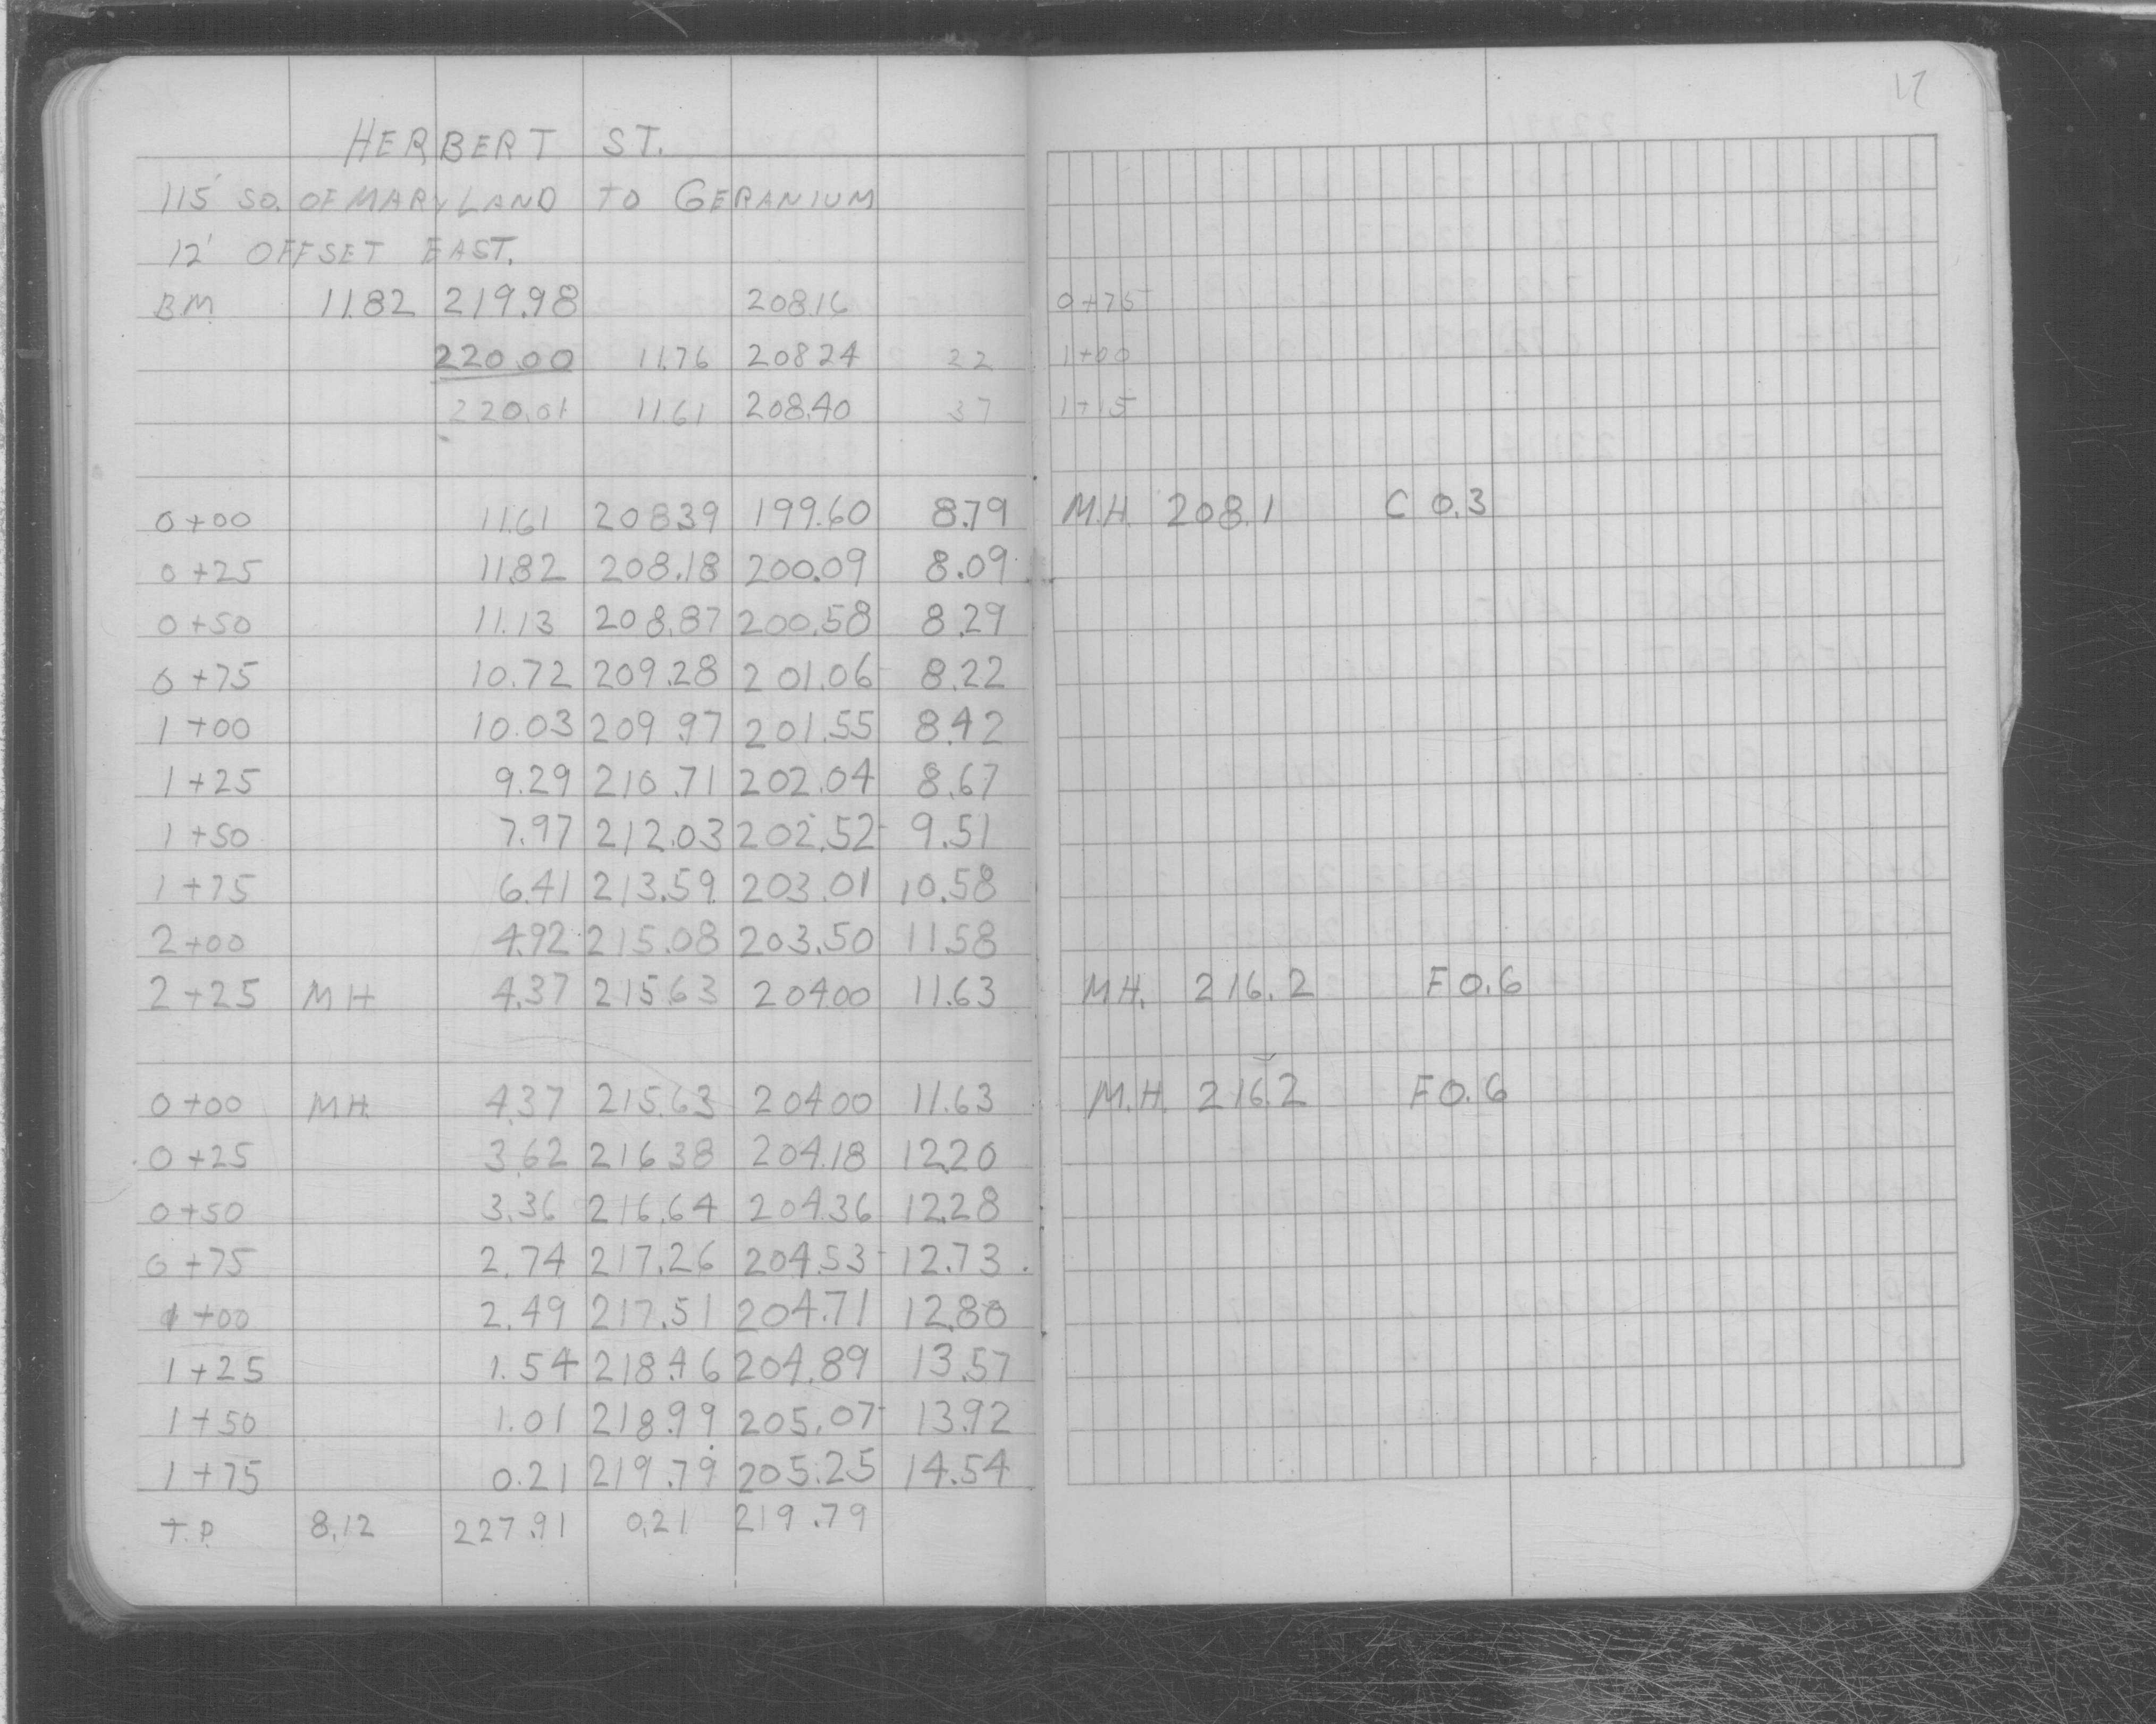 17
HERBERT ST.
115' SO. OF MARYLAND TO GERANIUM
12' OFFSET EAST.
BM 11.82 219.98 208.16 0+75
220.00 11.76 208 24 22 1+00
220.01 11.61 208.40 37 1+15
0+00 11.61 208.39 199.60 8.79 M.H. 208.1 C 0.3
0+25 11.82 208.18 200.09 8.09
0+50 11.13 208.87 200.58 8.29
0+75 10.72 209.28 201.06 8.22
1+00 10.03 209.97 201.55 8.42
1+25 9.29 210.71 202.04 8.67
1+50 7.97 212.03 202.52 9.51
1+75 6.41 213.59 203.01 10.58
2+00 4.92 215.08 203.50 11.58
2+25 MH 4.37 215.63 204.00 11.63 M.H. 216.2 F 0.6
0+00 MH. 4.37 215.63 204.00 11.63 M.H. 216.2 F 0.6
0+25 3.62 216.38 204.18 12.20
0+50 3.36 216.64 204.36 12.28
0+75 2.74 217.26 204.53 12.73
1+00 2.49 217.51 204.71 12.80
1+25 1.54 218.46 204.89 13.57
1+50 1.01 218.99 205.07 13.92
1+75 0.21 219.79 205.25 14.54
T.P. 8.12 227.91 0.21 219.79